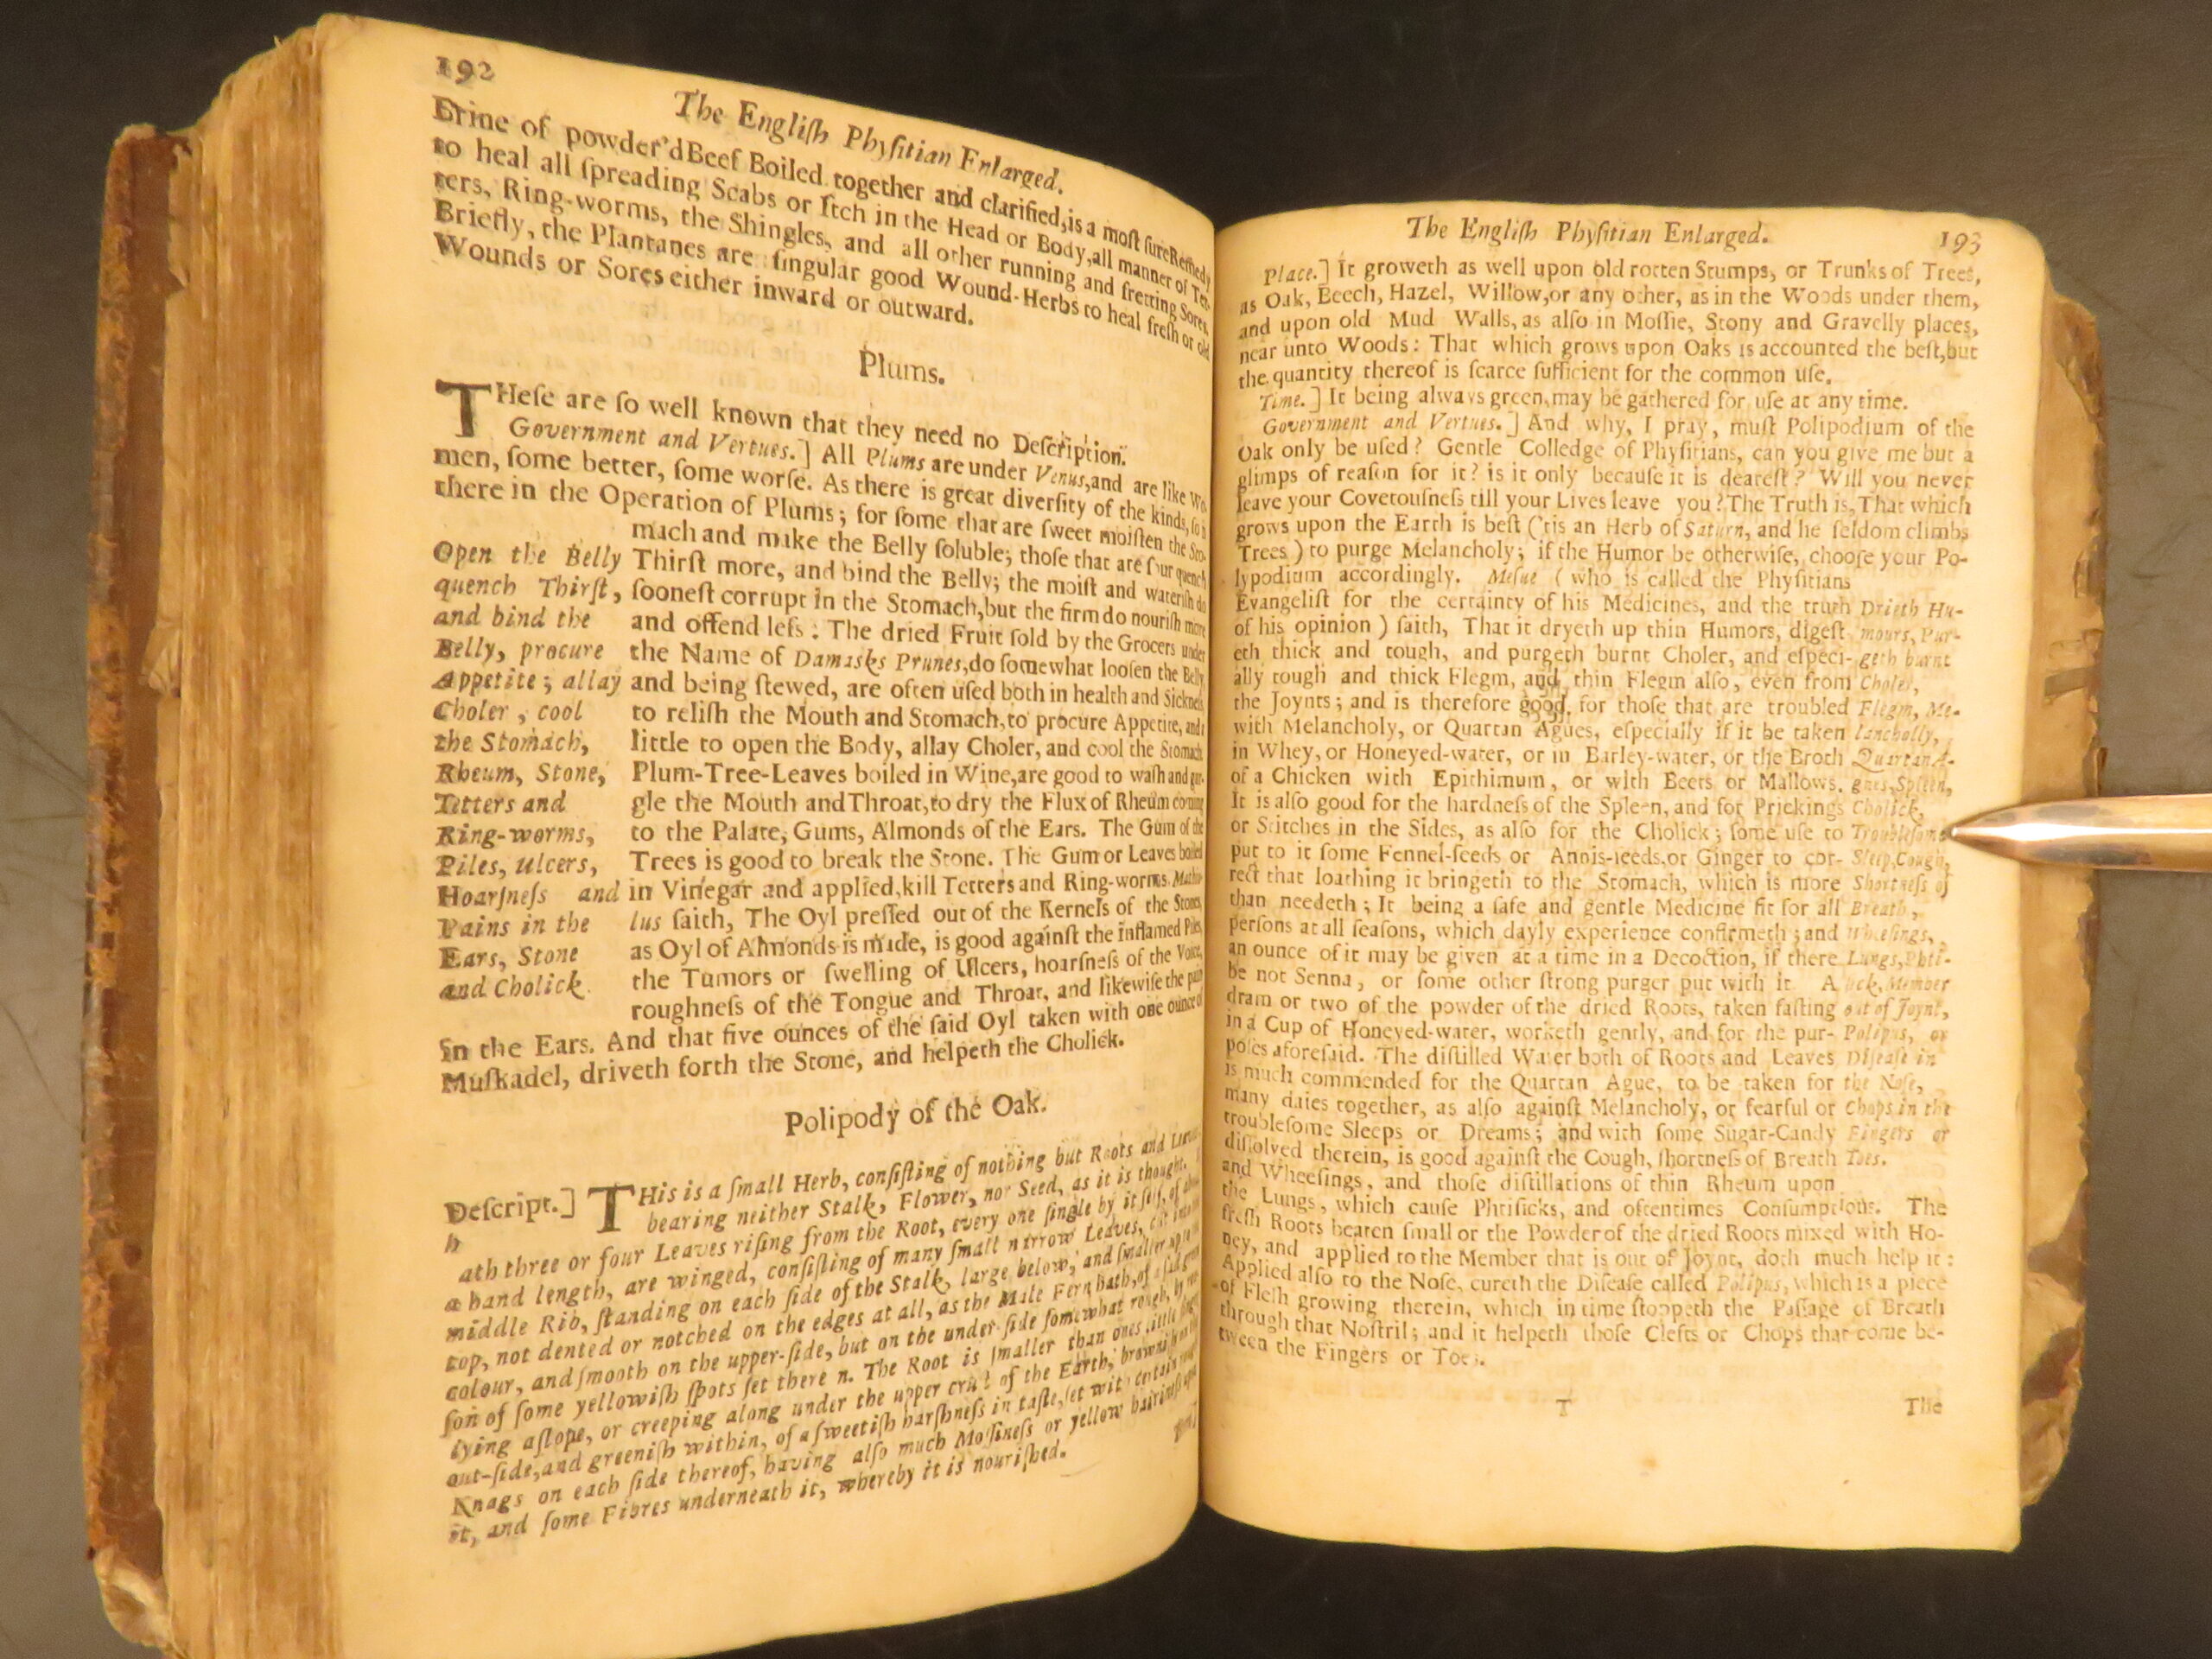 192
The Engliſh Phyſitian Enlarged.
Brine of powder'd Beef Boiled together and clarified, is a moſt ſure Remedy
to heal all ſpreading Scabs or Itch in the Head or Body, all manner of Tet-
ters, Ring-worms, the Shingles, and all other running and fretting Sores.
Briefly, the Plantanes are ſingular good Wound-Herbs to heal freſh or old
Wounds or Sores either inward or outward.
Plums.
THeſe are ſo well known that they need no Deſcription.
Government and Vertues.] All Plums are under Venus, and are like Wo-
men, ſome better, ſome worſe. As there is great diverſity of the kinds, ſo is
there in the Operation of Plums; for ſome that are ſweet moiſten the Sto-
mach and make the Belly ſoluble; thoſe that are ſour quench
Thirſt more, and bind the Belly; the moiſt and wateriſh do
ſooneſt corrupt in the Stomach, but the firm do nouriſh more
and offend leſs: The dried Fruit ſold by the Grocers under
the Name of Damasks Prunes, do ſomewhat looſen the Belly
and being ſtewed, are often uſed both in health and Sickneſs
to reliſh the Mouth and Stomach, to procure Appetite, and a
little to open the Body, allay Choler, and cool the Stomach.
Plum-Tree-Leaves boiled in Wine, are good to waſh and gar-
gle the Mouth and Throat, to dry the Flux of Rheum coming
to the Palate, Gums, Almonds of the Ears. The Gum of the
Trees is good to break the Stone. The Gum or Leaves boiled
in Vinegar and applied, kill Tetters and Ring-worms.
lus ſaith, The Oyl preſſed out of the Kernels of the Stones,
as Oyl of Almonds is made, is good againſt the inflamed Piles,
the Tumors or ſwelling of Ulcers, hoarſneſs of the Voice,
roughneſs of the Tongue and Throat, and likewiſe the pain
in the Ears. And that five ounces of the ſaid Oyl taken with one ounce of
Muſkadel, driveth forth the Stone, and helpeth the Cholick.
Open the Belly
quench Thirſt,
and bind the
Belly, procure
Appetite; allay
Choler, cool
the Stomach,
Rheum, Stone,
Tetters and
Ring-worms,
Piles, Ulcers,
Hoarſneſs and
Pains in the
Ears, Stone
and Cholick.
Polipody of the Oak.
Deſcript.] THis is a ſmall Herb, conſiſting of nothing but Roots and Leaves
bearing neither Stalk, Flower, nor Seed, as it is thought. It
h
ath three or four Leaves riſing from the Root, every one ſingle by it ſelf, of about
a hand length, are winged, conſiſting of many ſmall narrow Leaves, cut into the
middle Rib, ſtanding on each ſide of the Stalk, large below, and ſmaller up to the
top, not dented or notched on the edges at all, as the Male Fern hath, of a ſad green
colour, and ſmooth on the upper-ſide, but on the under-ſide ſomewhat rough, by rea-
ſon of ſome yellowiſh ſpots ſet there n. The Root is ſmaller than ones little finger
lying aſlope, or creeping along under the upper cruſt of the Earth, browniſh on the
out-ſide, and greeniſh within, of a ſweetiſh harſhneſs in taſte, ſet with certain rough
Knags on each ſide thereof, having alſo much Moſſineſs or yellow hairineſs upon
it, and ſome Fibres underneath it, whereby it is nouriſhed.
The Engliſh Phyſitian Enlarged.
193
Place.] It groweth as well upon old rotten Stumps, or Trunks of Trees,
as Oak, Beech, Hazel, Willow, or any other, as in the Woods under them,
and upon old Mud Walls, as alſo in Moſſie, Stony and Gravelly places,
near unto Woods: That which grows upon Oaks is accounted the beſt, but
the quantity thereof is ſcarce ſufficient for the common uſe.
Time.] It being always green, may be gathered for uſe at any time.
Government and Vertues.] And why, I pray, muſt Polipodium of the
Oak only be uſed? Gentle Colledge of Phyſitians, can you give me but a
glimps of reaſon for it? is it only becauſe it is deareſt? Will you never
leave your Covetouſneſs till your Lives leave you? The Truth is, That which
grows upon the Earth is beſt ('tis an Herb of Saturn, and he ſeldom climbs
Trees) to purge Melancholy; if the Humor be otherwiſe, chooſe your Po-
lypodium accordingly. Meſue (who is called the Phyſitians
Evangeliſt for the certainty of his Medicines, and the truth
of his opinion) ſaith, That it dryeth up thin Humors, digeſt
eth thick and tough, and purgeth burnt Choler, and eſpeci-
ally tough and thick Flegm, and thin Flegm alſo, even from
the Joynts; and is therefore good for thoſe that are troubled
with Melancholy, or Quartan Agues, eſpecially if it be taken
in Whey, or Honeyed-water, or in Barley-water, or the Broth
of a Chicken with Epithimum, or with Beets or Mallows.
It is alſo good for the hardneſs of the Spleen, and for Prickings
or Stitches in the Sides, as alſo for the Cholick; ſome uſe to
put to it ſome Fennel-ſeeds or Annis-ſeeds, or Ginger to cor-
rect that loathing it bringeth to the Stomach, which is more
than needeth; It being a ſafe and gentle Medicine fit for all
perſons at all ſeaſons, which dayly experience confirmeth; and
an ounce of it may be given at a time in a Decoction, if there
be not Senna, or ſome other ſtrong purger put with it. A
dram or two of the powder of the dried Roots, taken faſting
in a Cup of Honeyed-water, worketh gently, and for the pur-
poſes aforeſaid. The diſtilled Water both of Roots and Leaves
is much commended for the Quartan Ague, to be taken for
many daies together, as alſo againſt Melancholy, or fearful or
troubleſome Sleeps or Dreams; and with ſome Sugar-Candy
diſſolved therein, is good againſt the Cough, ſhortneſs of Breath
and Wheeſings, and thoſe diſtillations of thin Rheum upon
the Lungs, which cauſe Phtiſicks, and oftentimes Conſumptions. The
freſh Roots beaten ſmall or the Powder of the dried Roots mixed with Ho-
ney, and applied to the Member that is out of Joynt, doth much help it:
Applied alſo to the Noſe, cureth the Diſeaſe called Polipus, which is a piece
of Fleſh growing therein, which in time ſtoppeth the Paſſage of Breath
through that Noſtril; and it helpeth thoſe Clefts or Chops that come be-
tween the Fingers or Toes.
Drieth Hu-
mours, Pur-
geth burnt
Choler,
Flegm, Me-
lancholly,
Quartan A-
gues, Spleen,
Cholick,
Troubleſome
Sleep, Cough,
Shortneſs of
Breath,
Wheeſings,
Lungs, Phti-
ſick, Member
out of Joynt,
Polipus, or
Diſeaſe in
the Noſe,
Chops in the
Fingers or
Toes.
T
The